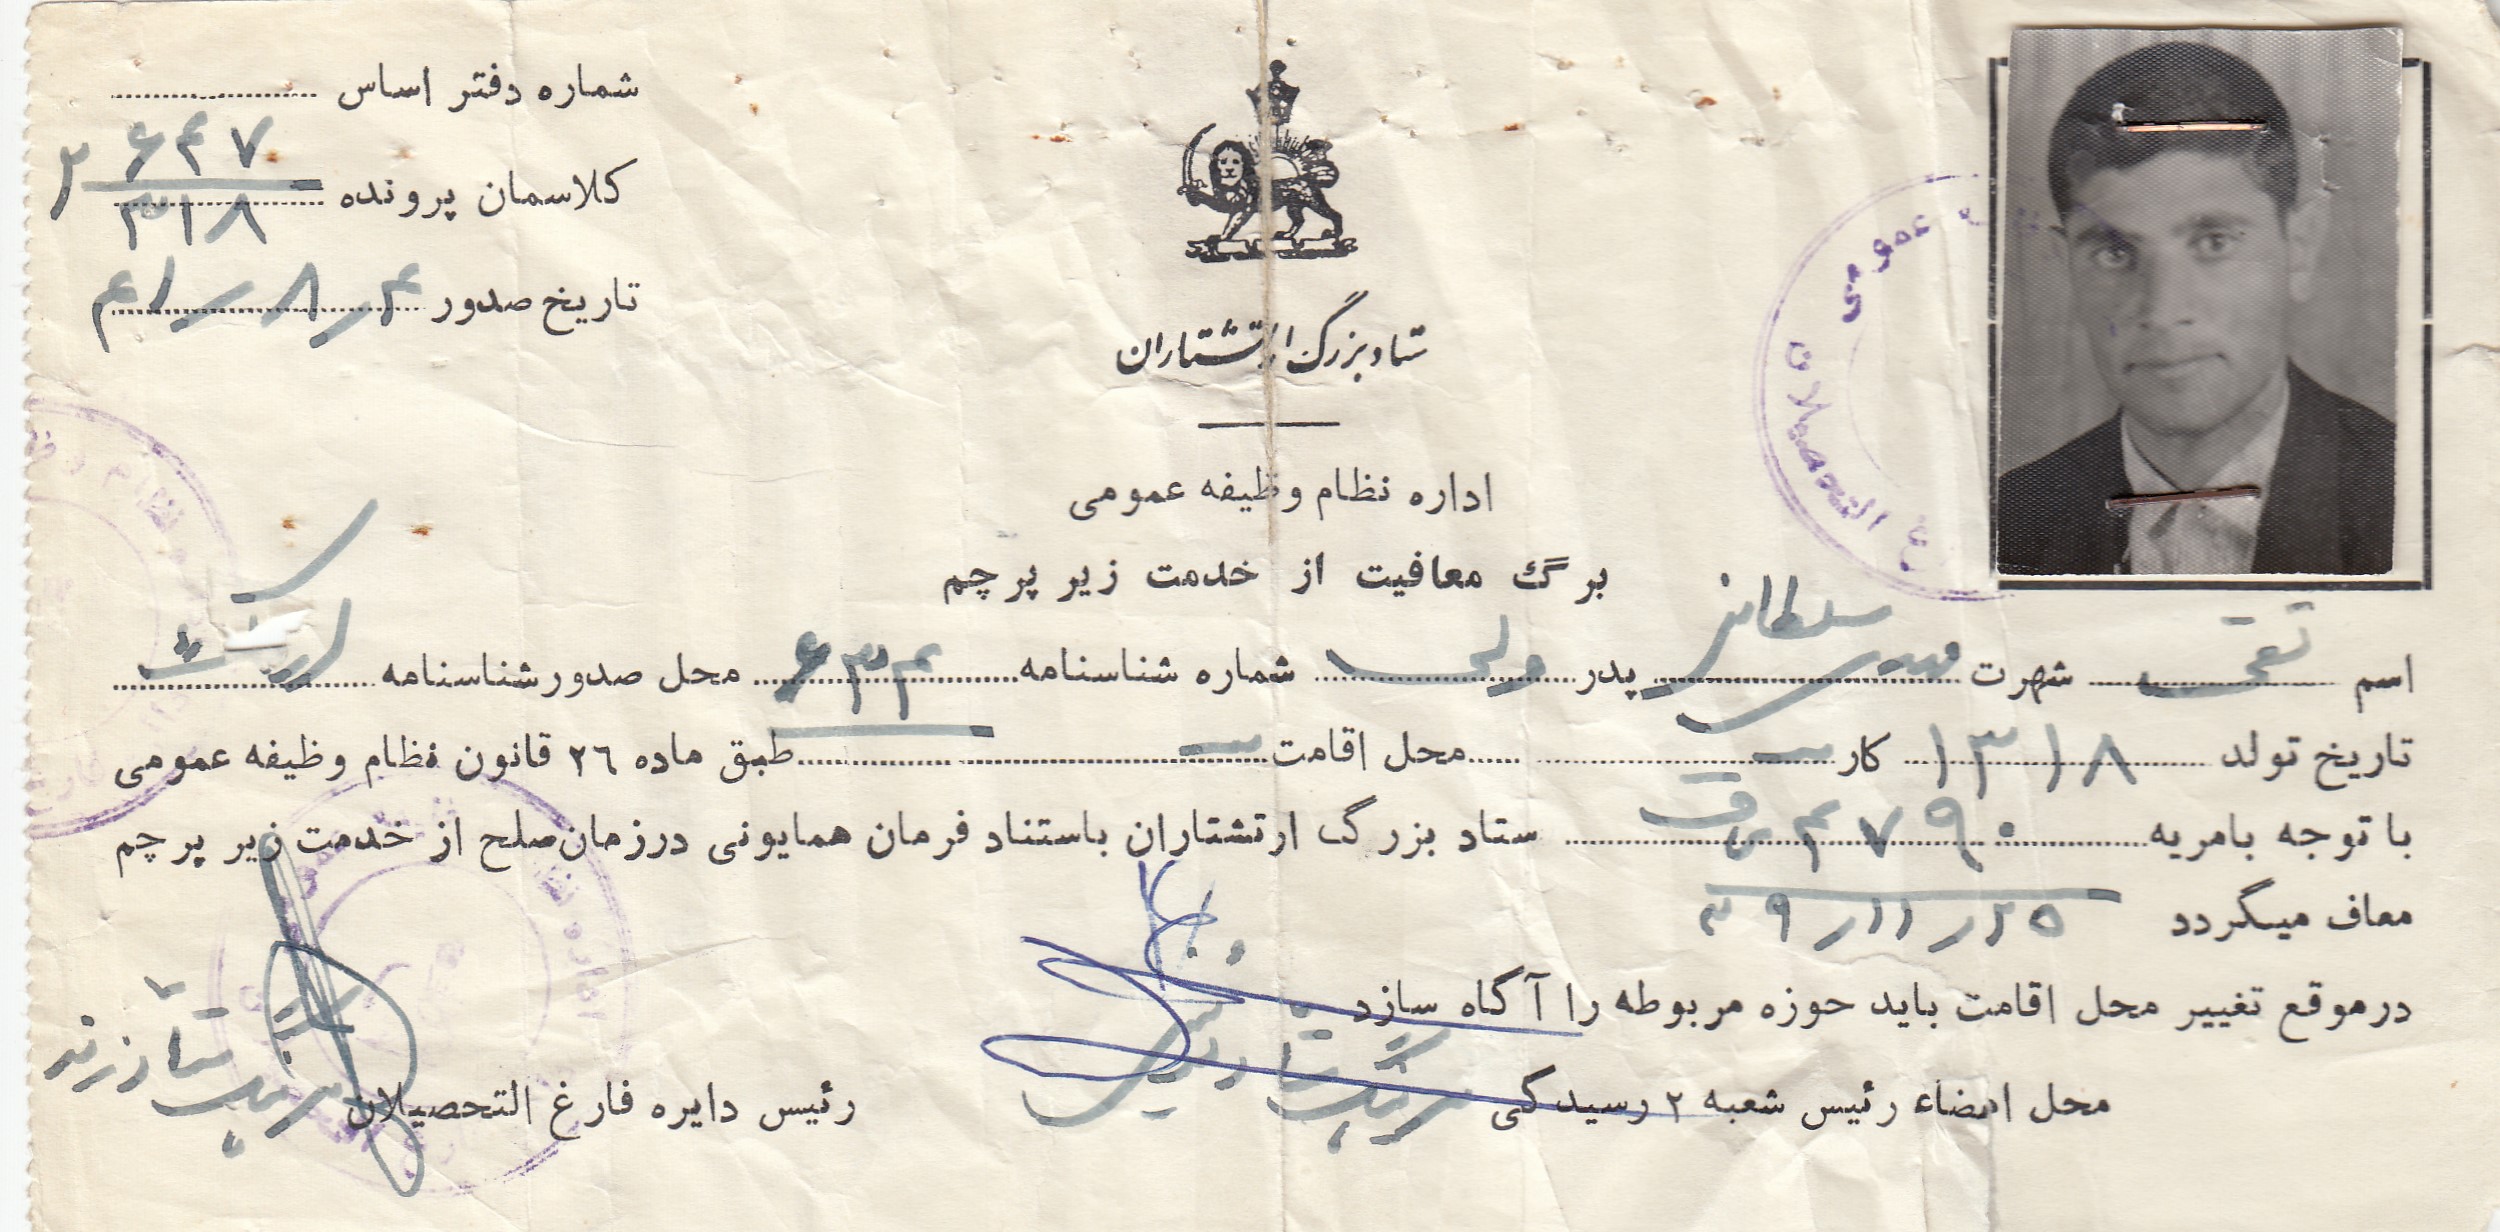 شماره دفتر اساس
کلاسمان پرونده ۶۴۷ / ۳۱۸ ۲
تاریخ صدور ۴ر۸ر۴۱
ستاد بزرگ ارتشتاران
اداره نظام وظیفه عمومی
برگ معافیت از خدمت زیر پرچم
اسم تقی شهرت سلطانی پدر ولی شماره شناسنامه ۶۳۴ محل صدور شناسنامه
تاریخ تولد ۱۳۱۸ کار ـ محل اقامت ـ طبق ماده ۲۶ قانون نظام وظیفه عمومی
با توجه بامریه ۴۷۹۰ ستاد بزرگ ارتشتاران باستناد فرمان همایونی درزمان صلح از خدمت زیر پرچم
معاف میگردد ۲۵ر۱۱ر۳۹
درموقع تغییر محل اقامت باید حوزه مربوطه را آگاه سازد
محل امضاء رئیس شعبه ۲ رسیدگی رئیس دایره فارغ التحصیلان